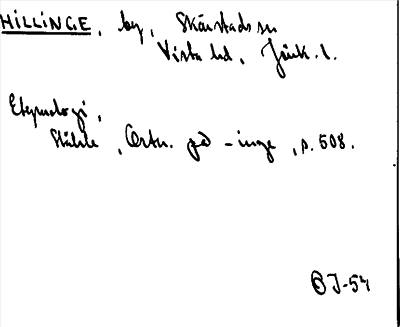 HILLINGE, by, Skärstads sn
Vista hd, Jönk. l.
Etymologi,
Ståhle, Ortn. på -inge, s. 508.
J-54